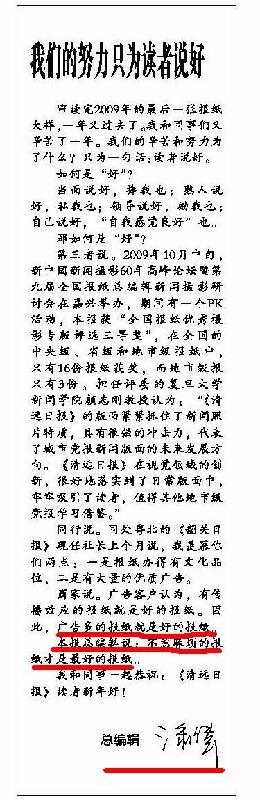 我们的努力只为读者说好
审读完2009年的最后一张报纸
大样,一年又过去了。我和同事们又
辛苦了一年。我们的辛苦和努力为
了什么?只为一句话:读者说好。
如何是“好”?
当面说好,捧我也;熟人说
好,私我也;领导说好,励我也;
自己说好,“自我感觉良好”也。
那如何是“好”?
第三者说。2009年10月中旬,
新中国新闻摄影60年高峰论坛暨第
九届全国报纸总编辑新闻摄影研
讨会在嘉兴举办,期间有一个PK
活动,本报获“全国报纸优秀摄
影专版评选二等奖”,在全国的
中央级、省级和地市级报纸中,
只有16份报纸获奖,而地市级报
只有3份。担任评委的复旦大学
新闻学院顾志刚教授认为:“《清
远日报》的版面紧紧抓住了新闻照
片特质,具有很强的冲击力,代表
了城市党报新闻版面的未来发展方
向。《清远日报》在视觉领域的创
新,很好地落实到了日常版面中,
牢牢吸引了读者,值得其他地市级
党报学习借鉴。”
同行说。同处粤北的《韶关日
报》现任社长上个月说,我最服你
们两点:一是报纸办得有文化品
位,二是有大量的优质广告。
商家说。广告客户认为,有传
播效应的报纸就是好的报纸。因
此,广告多的报纸就是好的报纸。
本报总编辑说:不忽悠我的报
纸才是最好的报纸。
我和同事一起恭祝:《清远日
报》读者新年好!
总编辑